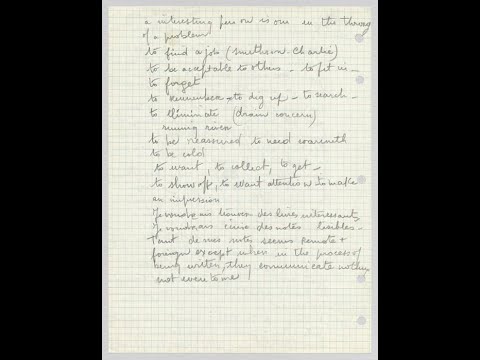 a interesting person is one in the throes
of a problem
to find a job (Smithson. Charlie)
to be acceptable to others _ to fit in _
to forget
to remember _ to dig up _ to search _
to eliminate (drain concern)
to be reassured to need warmth
to be cold
to want, to collect, to get _
to show off, to want attention to make
an impression
Je voudrais trouver des livres intéressants,
Je voudrais des notes lisibles _
Tant de mes notes seems remote +
foreign except when in the process of
being written, they communicate nothing
not even to me